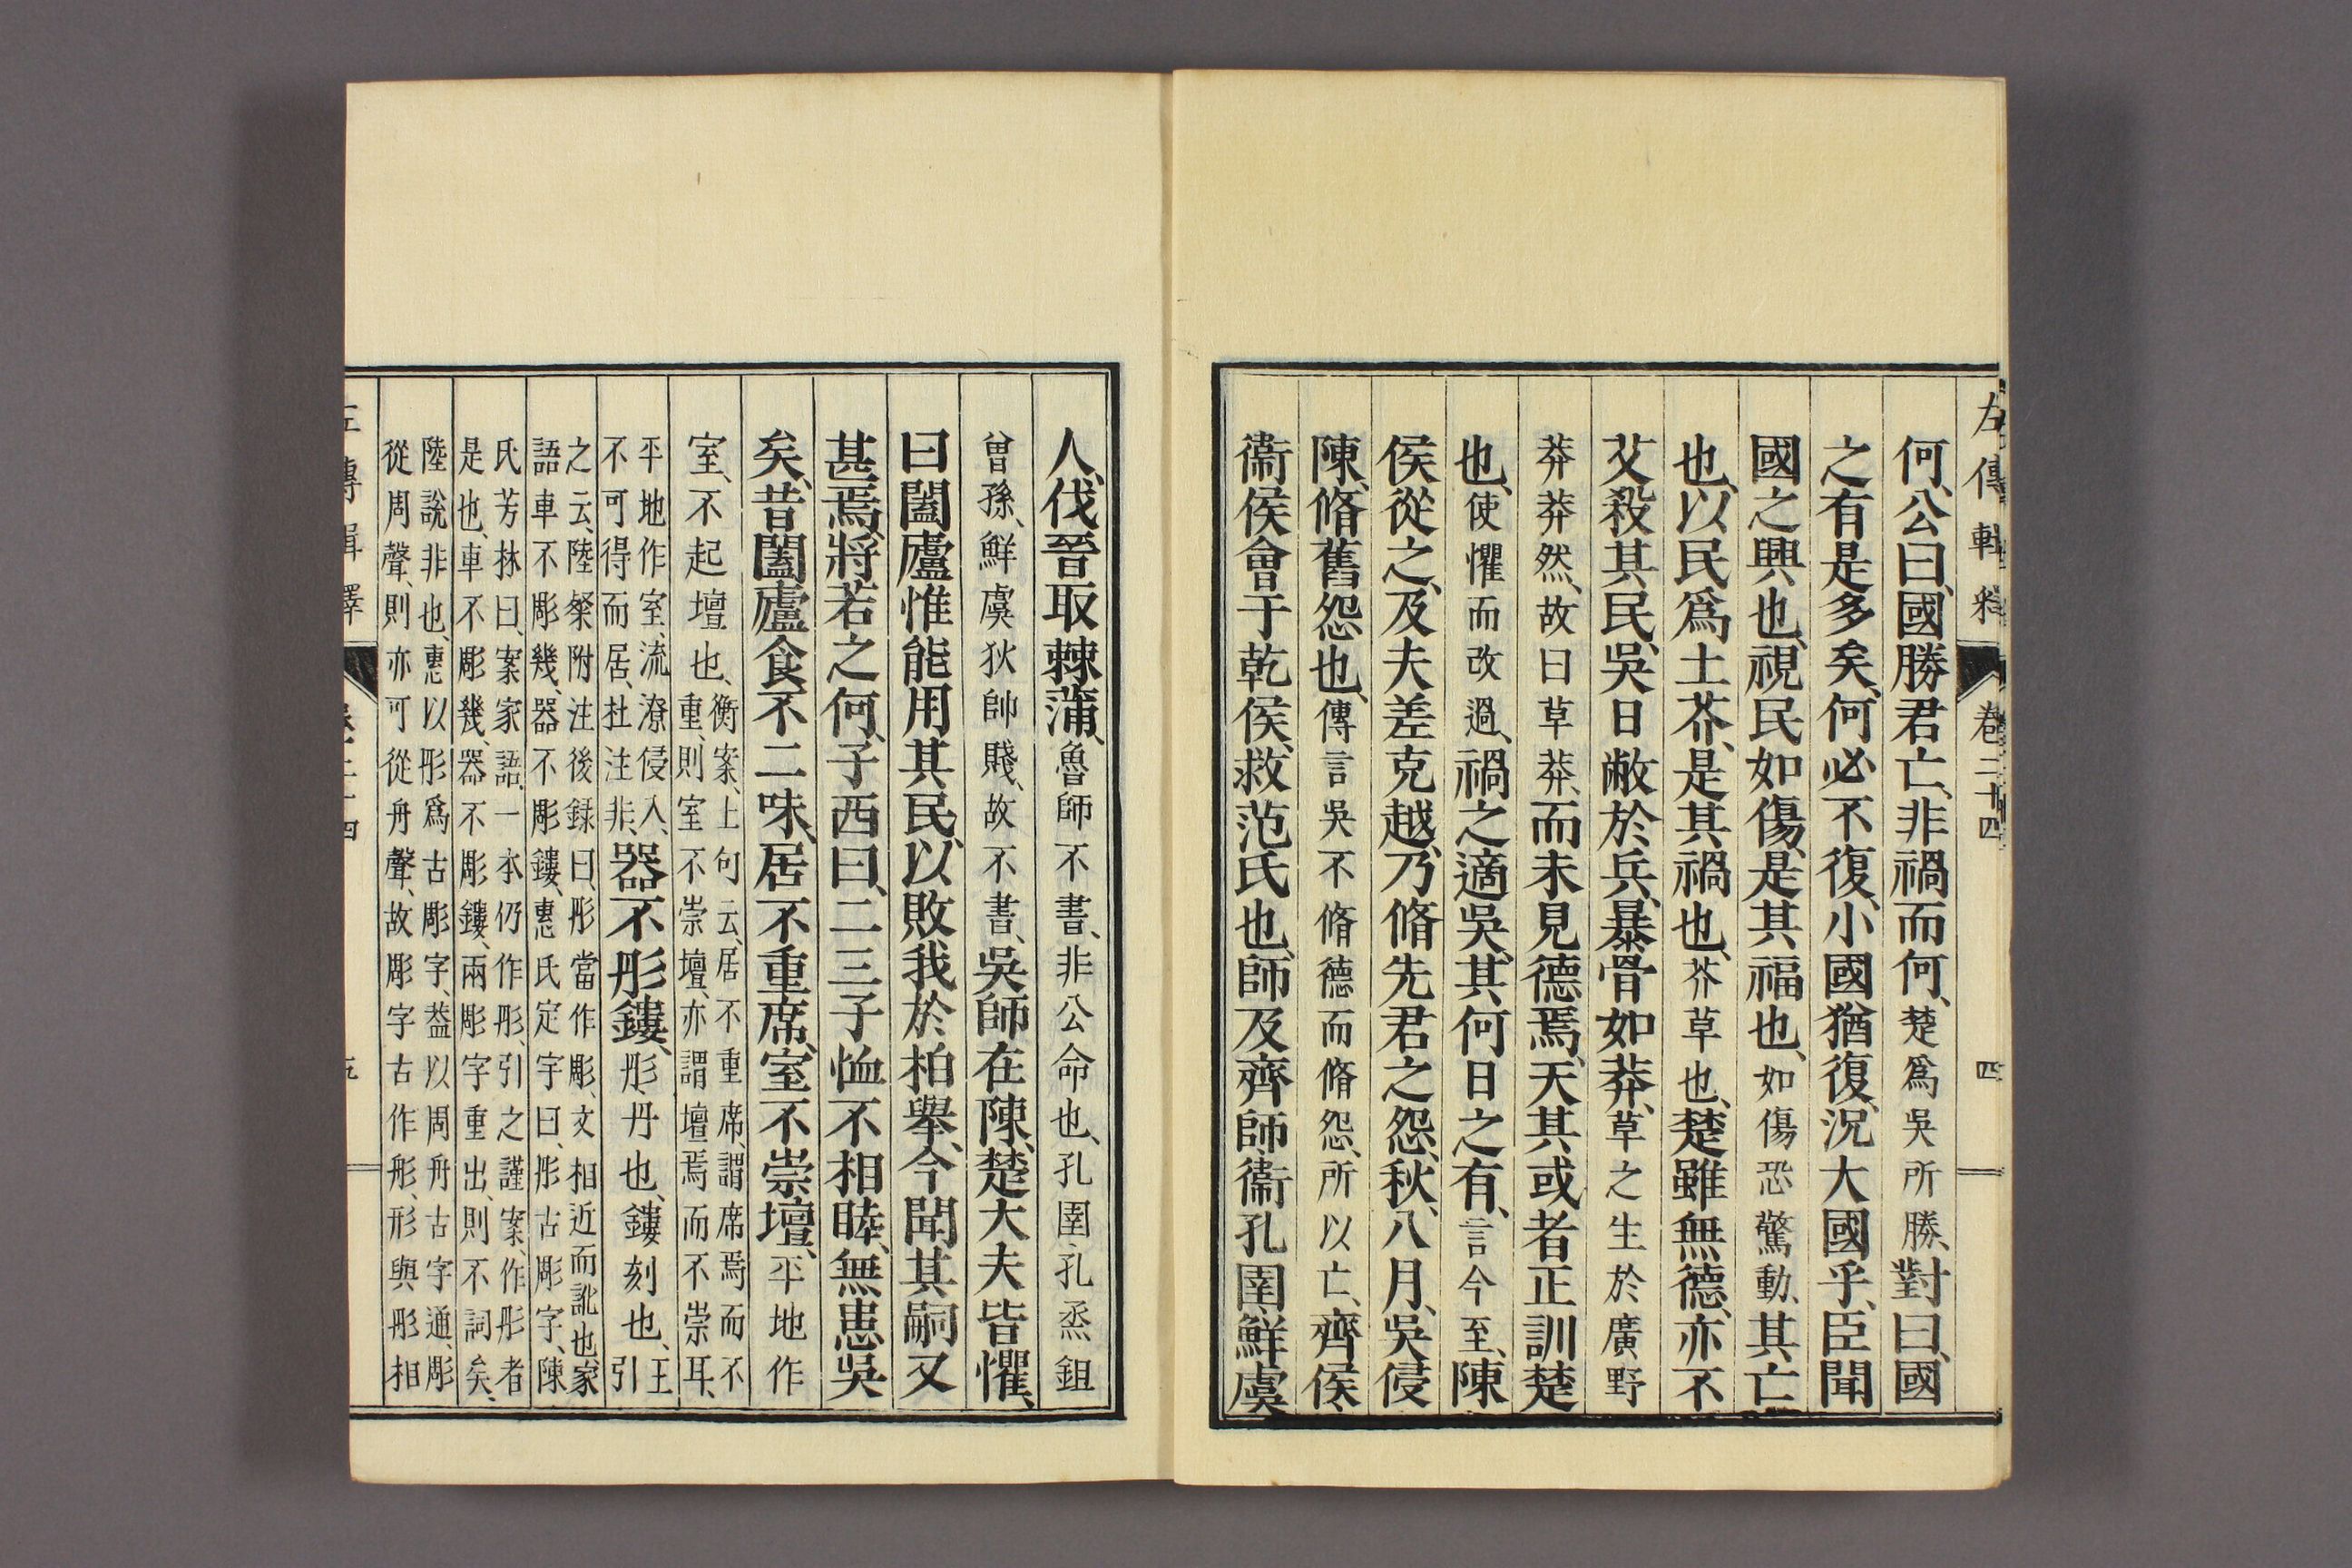 左傳輯釋 卷二十四 四
何、公曰、國勝君亡、非禍而何、楚爲吳所勝、對曰、國
之有是多矣、何必不復、小國猶復、況大國乎、臣聞
國之興也、視民如傷、是其福也、如傷恐驚動、其亡
也、以民爲土芥、是其禍也、芥草也、楚雖無德、亦不
艾殺其民、吳日敝於兵、暴骨如莽、草之生於廣野
莽莽然、故曰草莽、而未見德焉、天其或者正訓楚
也、使懼而改過、禍之適吳、其何日之有、言今至、陳
侯從之、及夫差克越、乃脩先君之怨、秋、八月、吳侵
陳、脩舊怨也、傳言吳不脩德而脩怨、所以亡、齊侯、
衞侯會于乾侯、救范氏也、師及齊師、衞孔圉、鮮虞
人、伐晉取棘蒲、魯師不書、非公命也、孔圉孔烝鉏
曾孫、鮮虞狄帥賤、故不書、吳師在陳、楚大夫皆懼、
曰闔廬惟能用其民、以敗我於柏舉、今聞其嗣又
甚焉、將若之何、子西曰、二三子恤不相睦、無患吳
矣、昔闔廬食不二味、居不重席、室不崇壇、平地作
室、不起壇也、衡案、上句云、居不重席、謂席焉而不
重、則室不崇壇、亦謂壇焉而不崇耳、
平地作室、流潦侵入、
不可得而居、杜注非、器不彤鏤、彤丹也、鏤刻也、王引
之云、陸粲附注後録曰、彤當作彫、文相近而訛也、家
語車不彫幾、器不彫鏤、惠氏定宇曰、彤古彫字、陳
氏芳林曰、案家語、一本仍作彤、引之謹案、作彤者
是也、車不彫幾、器不彫鏤、兩彫字重出、則不詞矣、
陸說非也、惠以彤爲古彫字、葢以周舟古字通、彫
從周聲、則亦可從舟聲、故彫字古作彤、形與彤相